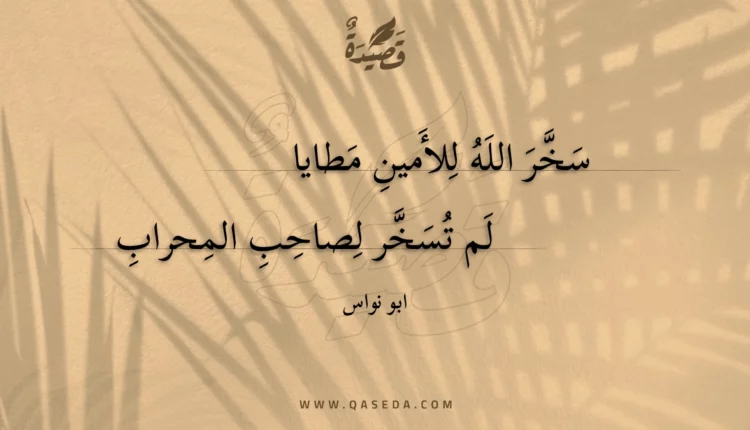 قَصِيدَةٌ
سَخَّرَ اللَهُ لِلأَمينِ مَطايا
لَم تُسَخَّر لِصاحِبِ المِحرابِ
ابو نواس
WWW.QASEDA.COM